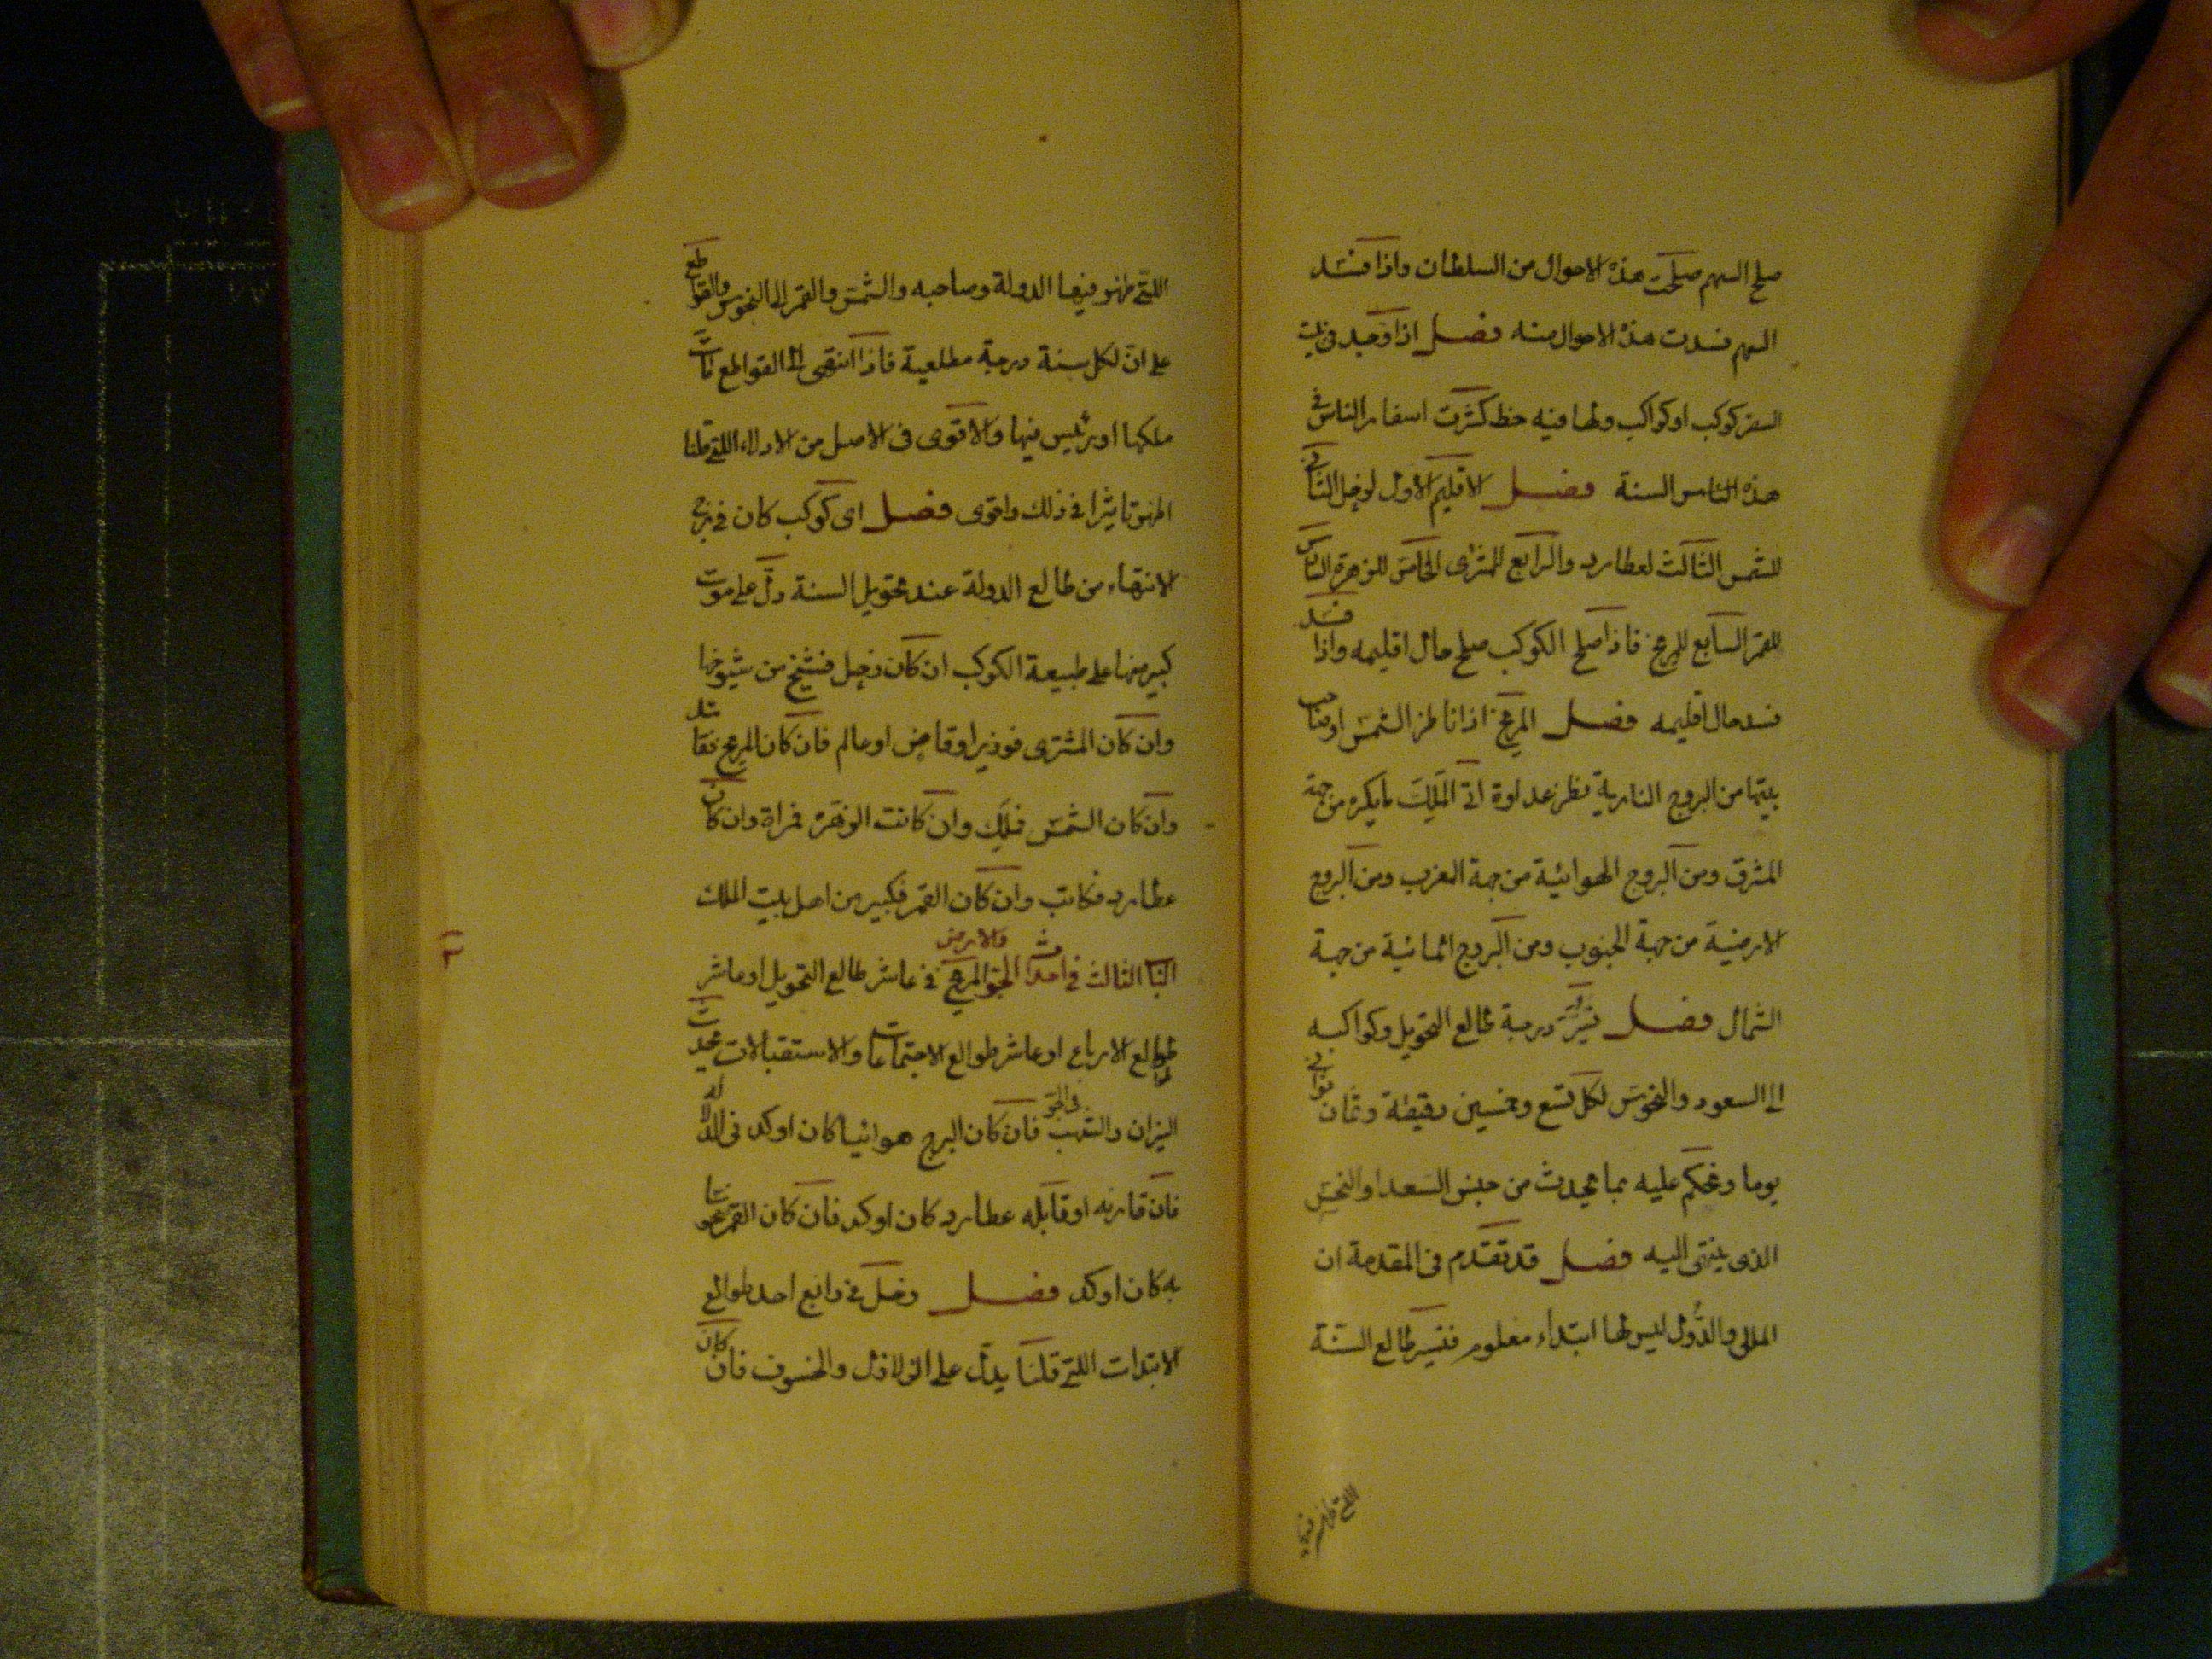 صلح السهم صلحت هذه الاحوال من السلطان واذا فسد
السهم فسدت هذه الاحوال منه فصل اذا وجد فى بيت
السفر كوكب او كواكب ولها فيه حظ كثرت اسفار الناس فى
هذه الناس السنة فصل الاقليم الاول لزحل الثانى
للشمس الثالث لعطارد والرابع للمشترى الخامس للزهرة السادس
للقمر السابع للمريخ فاذا صلح الكوكب صلح حال اقليمه واذا فسد
فسد حال اقليمه فصل المريخ اذا ناظر الشمس او صاحب
بيتها من البروج النارية نظر عداوة اتى الملك ما يكره من جهة
المشرق ومن البروج الهوائية من جهة المغرب ومن البروج
الارضية من جهة الجنوب ومن البروج المائية من جهة
الشمال فصل درجة طالع التحويل وكواكبه
الى السعود والنحوس لكل تسع وخمسين دقيقة وثمان ثوانى
يوما وتحكم عليه بما يحدث من جنس السعد او النحس
الذى ينتهى اليه فصل قد تقدم فى المقدمة ان
الملل والدول ليس لها ابتداء معلوم فتسير طالع السنة
اللتى
اللتى فيها الدولة وصاحبه والشمس والقمر الى النحوس والقواطع
على ان لكل سنة درجة مطلعية فاذا انتهى الى القواطع مات
ملكها او رئيس فيها والاقوى فى الاصل من الادلاء اللتى قلنا
تاثيرا فى ذلك واقوى فصل اى كوكب كان فى برج
الانتهاء من طالع الدولة عند تحويل السنة دل على موت
كبير منها على طبيعة الكوكب ان كان زحل فشيخ من شيوخها
وان كان المشترى فوزير او قاض او عالم فان كان المريخ فقائد
وان كان الشمس فملك وان كانت الزهره فمراة وان كان
عطارد فكاتب وان كان القمر فكبير من اهل بيت الملك
الباب الثالث فى احداث الجو والارض المريخ فى عاشر طالع التحويل او عاشر
طوالع الارباع او عاشر طوالع الاجتماعات والاستقبالات تحدث
النيران والشهب فى الجو فان كان البرج هوائيا كان اوكد فى الدلالة
فان قارنه او قابله عطارد كان اوكد فان كان القمر
به كان اوكد فصل زحل فى رابع احد طوالع
الابتدات اللتى قلنا يدل على الزلازل والخسوف فان كان